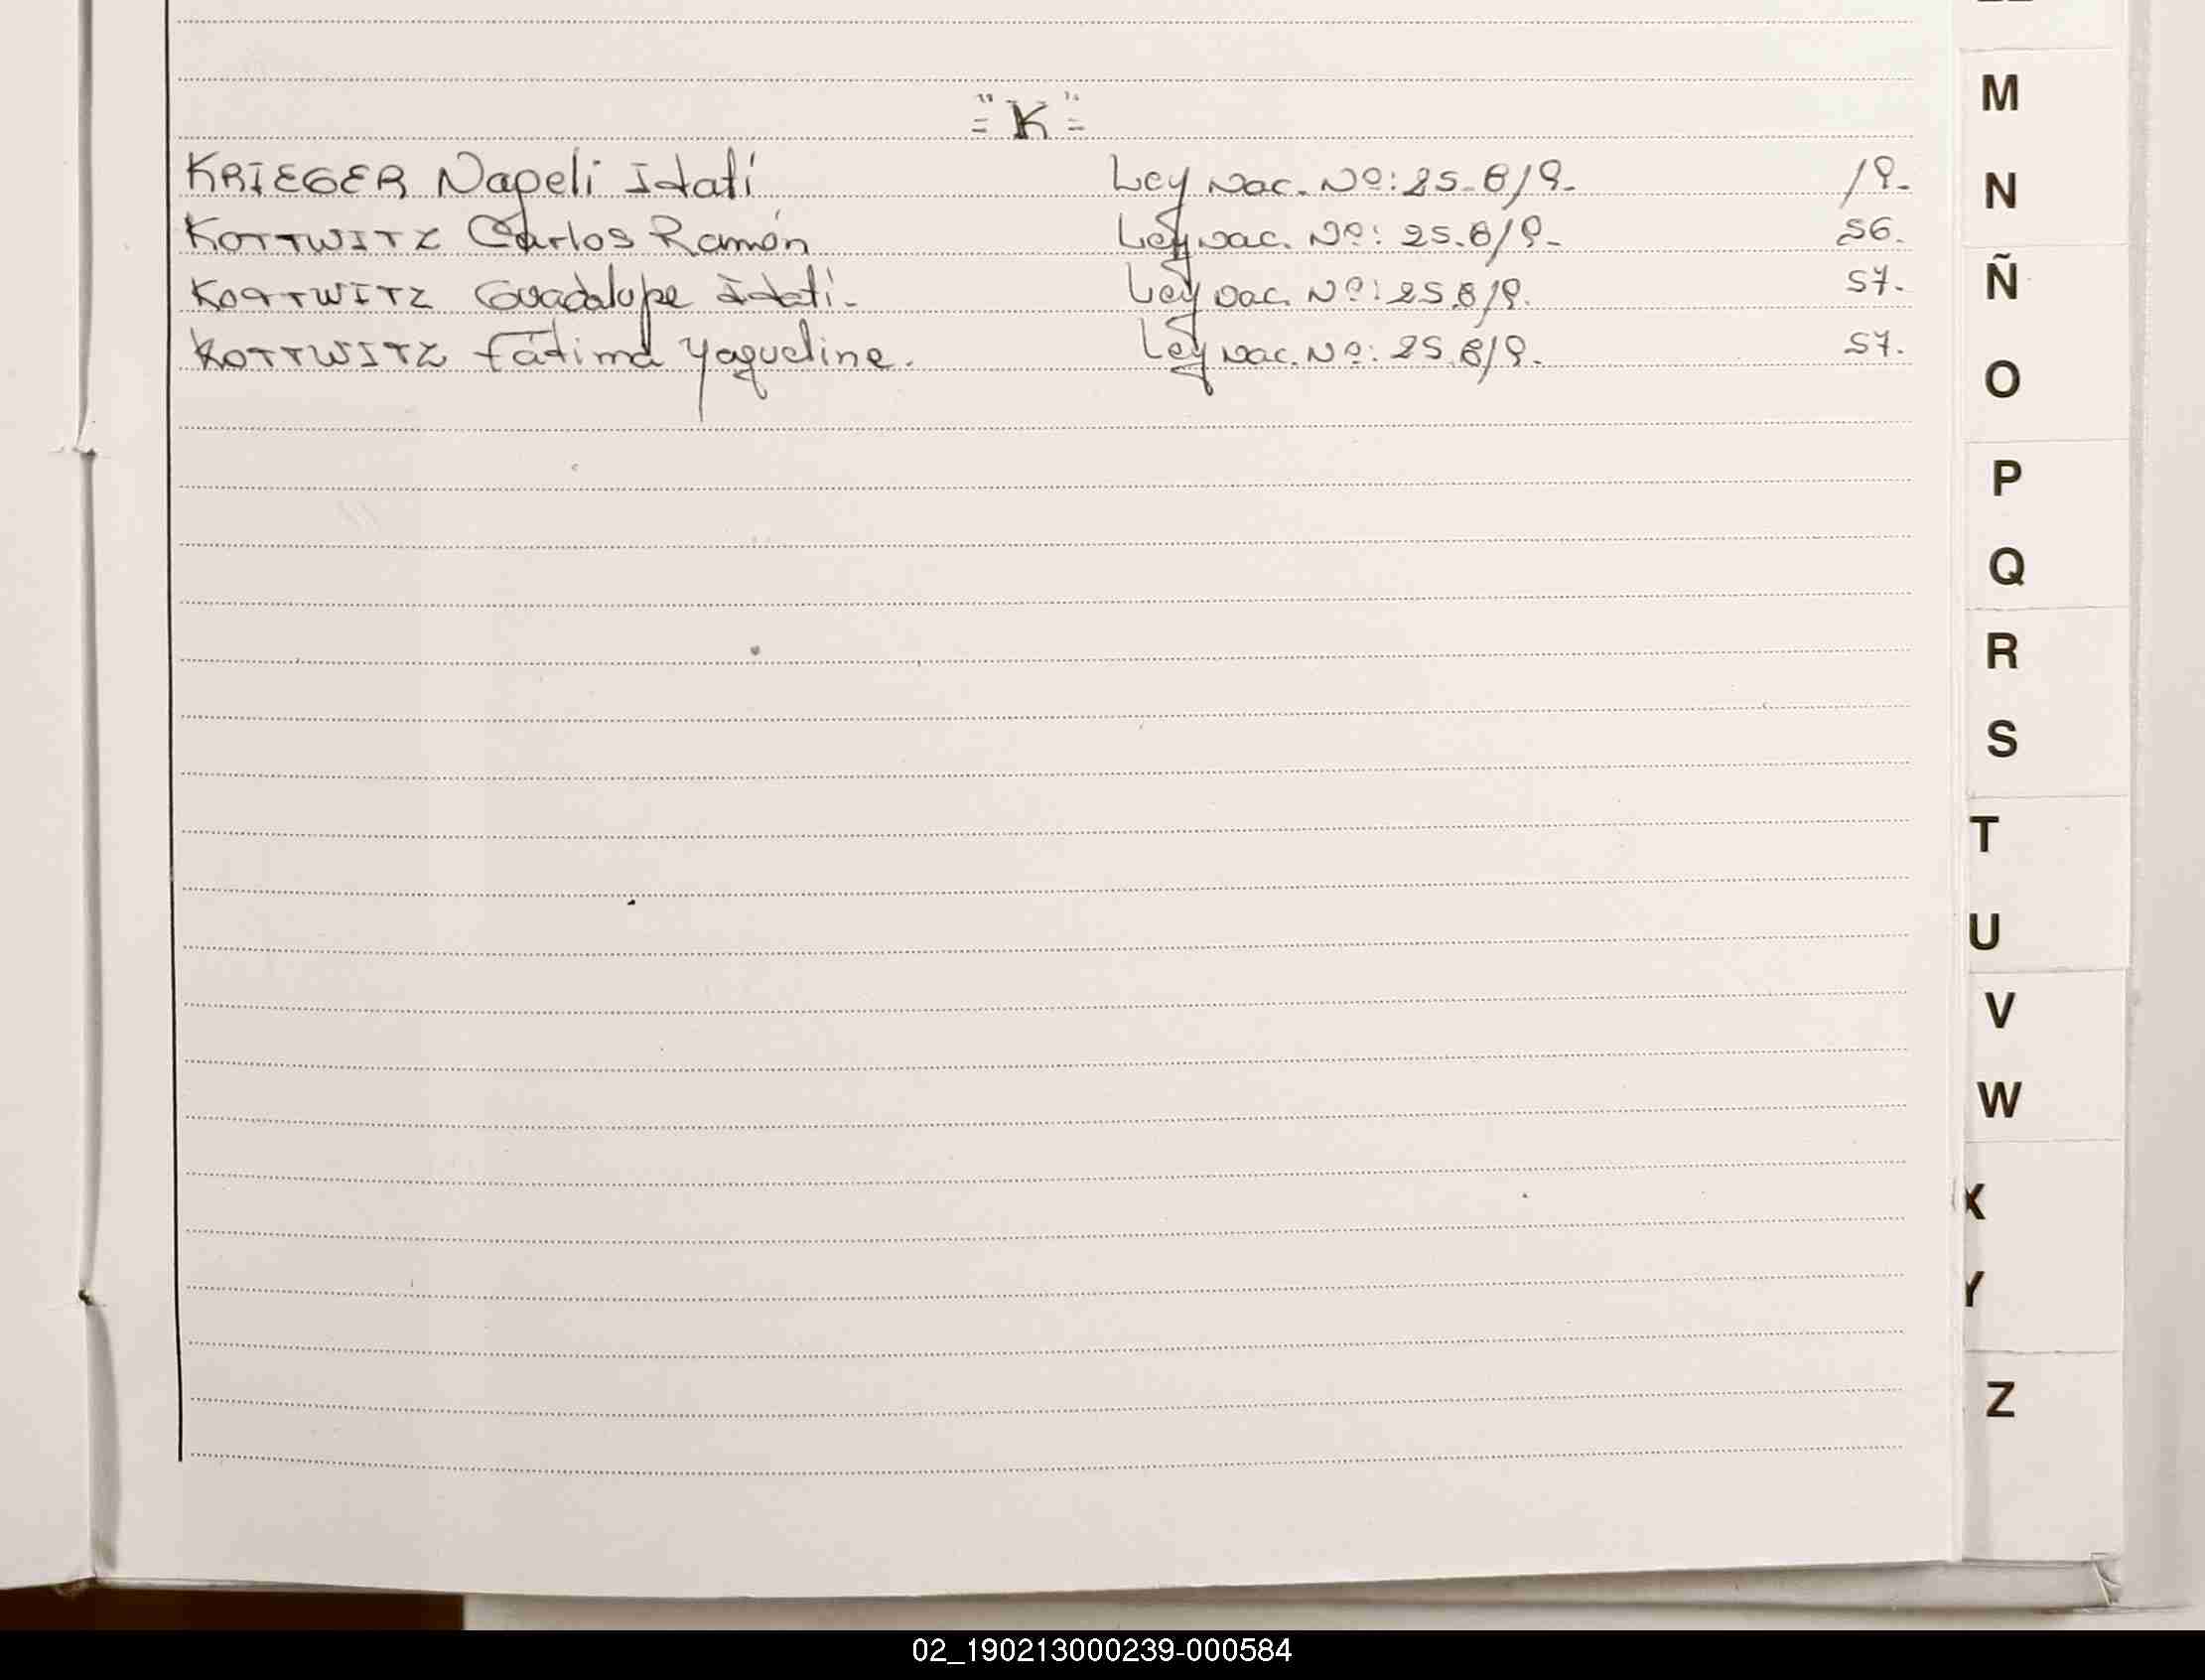 "K"
KRIEGER Napeli Itatí Ley nac. Nº: 25.819. 19.
KOTTWITZ Carlos Ramón Ley nac. Nº: 25.819. 56.
KOTTWITZ Guadalupe Itatí. Ley nac. Nº: 25.819. 57.
KOTTWITZ Fátima Yaqueline. Ley nac. Nº: 25.819. 57.
M
N
Ñ
O
P
Q
R
S
T
U
V
W
X
Y
Z
02_190213000239-000584